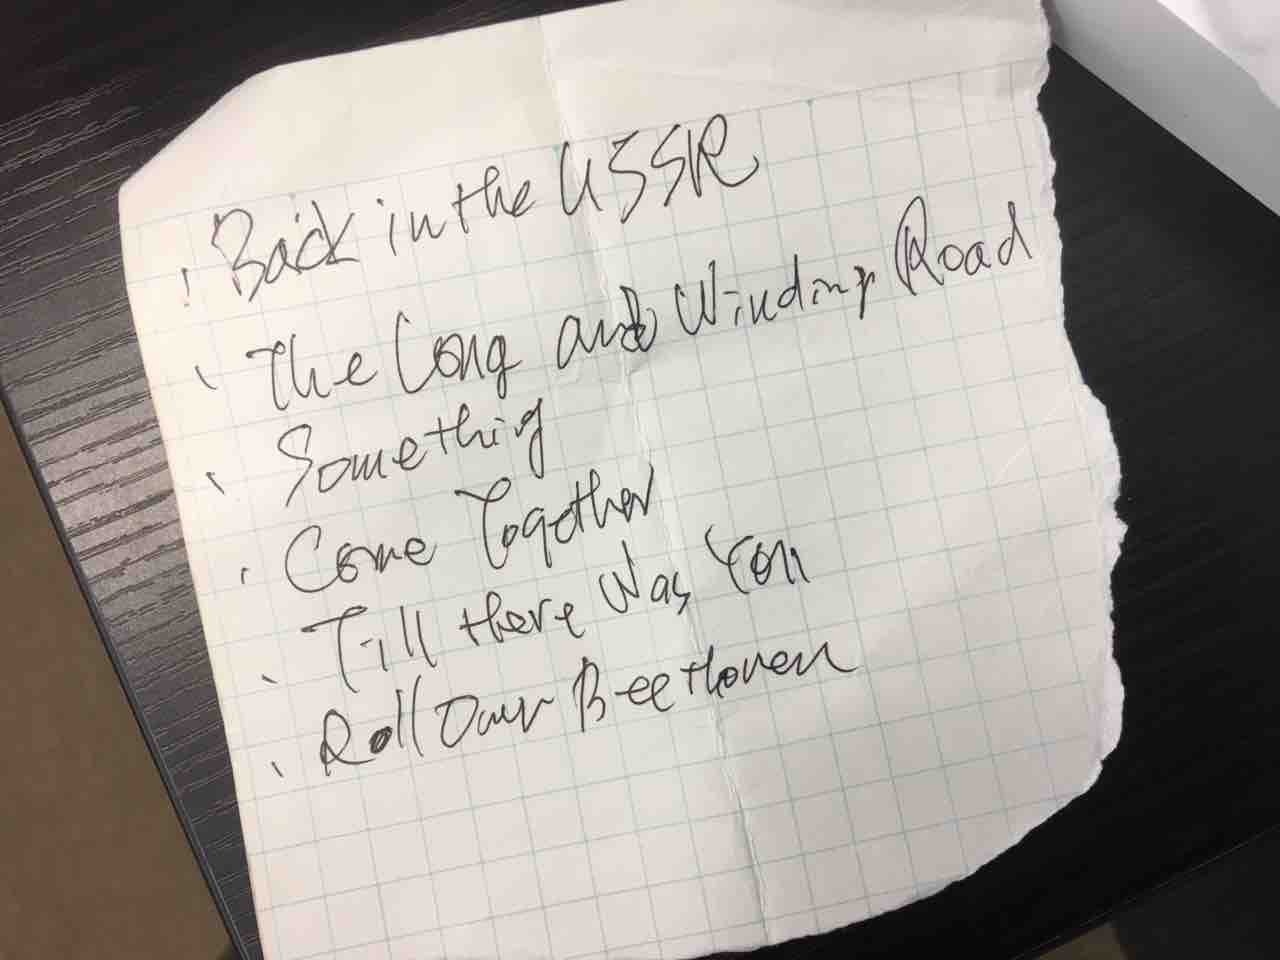 · Back in the USSR
· The Long and Winding Road
· Something
· Come Together
· Till there Was You
· Roll Over Beethoven